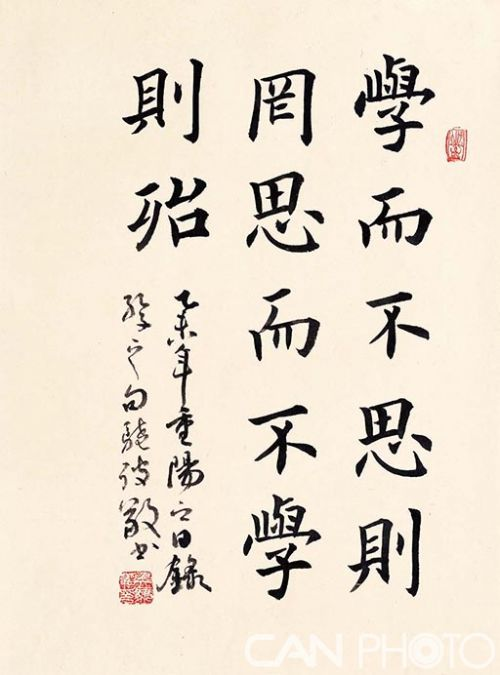 學而不思則
罔思而不學
則殆
乙未年重陽之日錄
之句
敬書
CANPHOTO